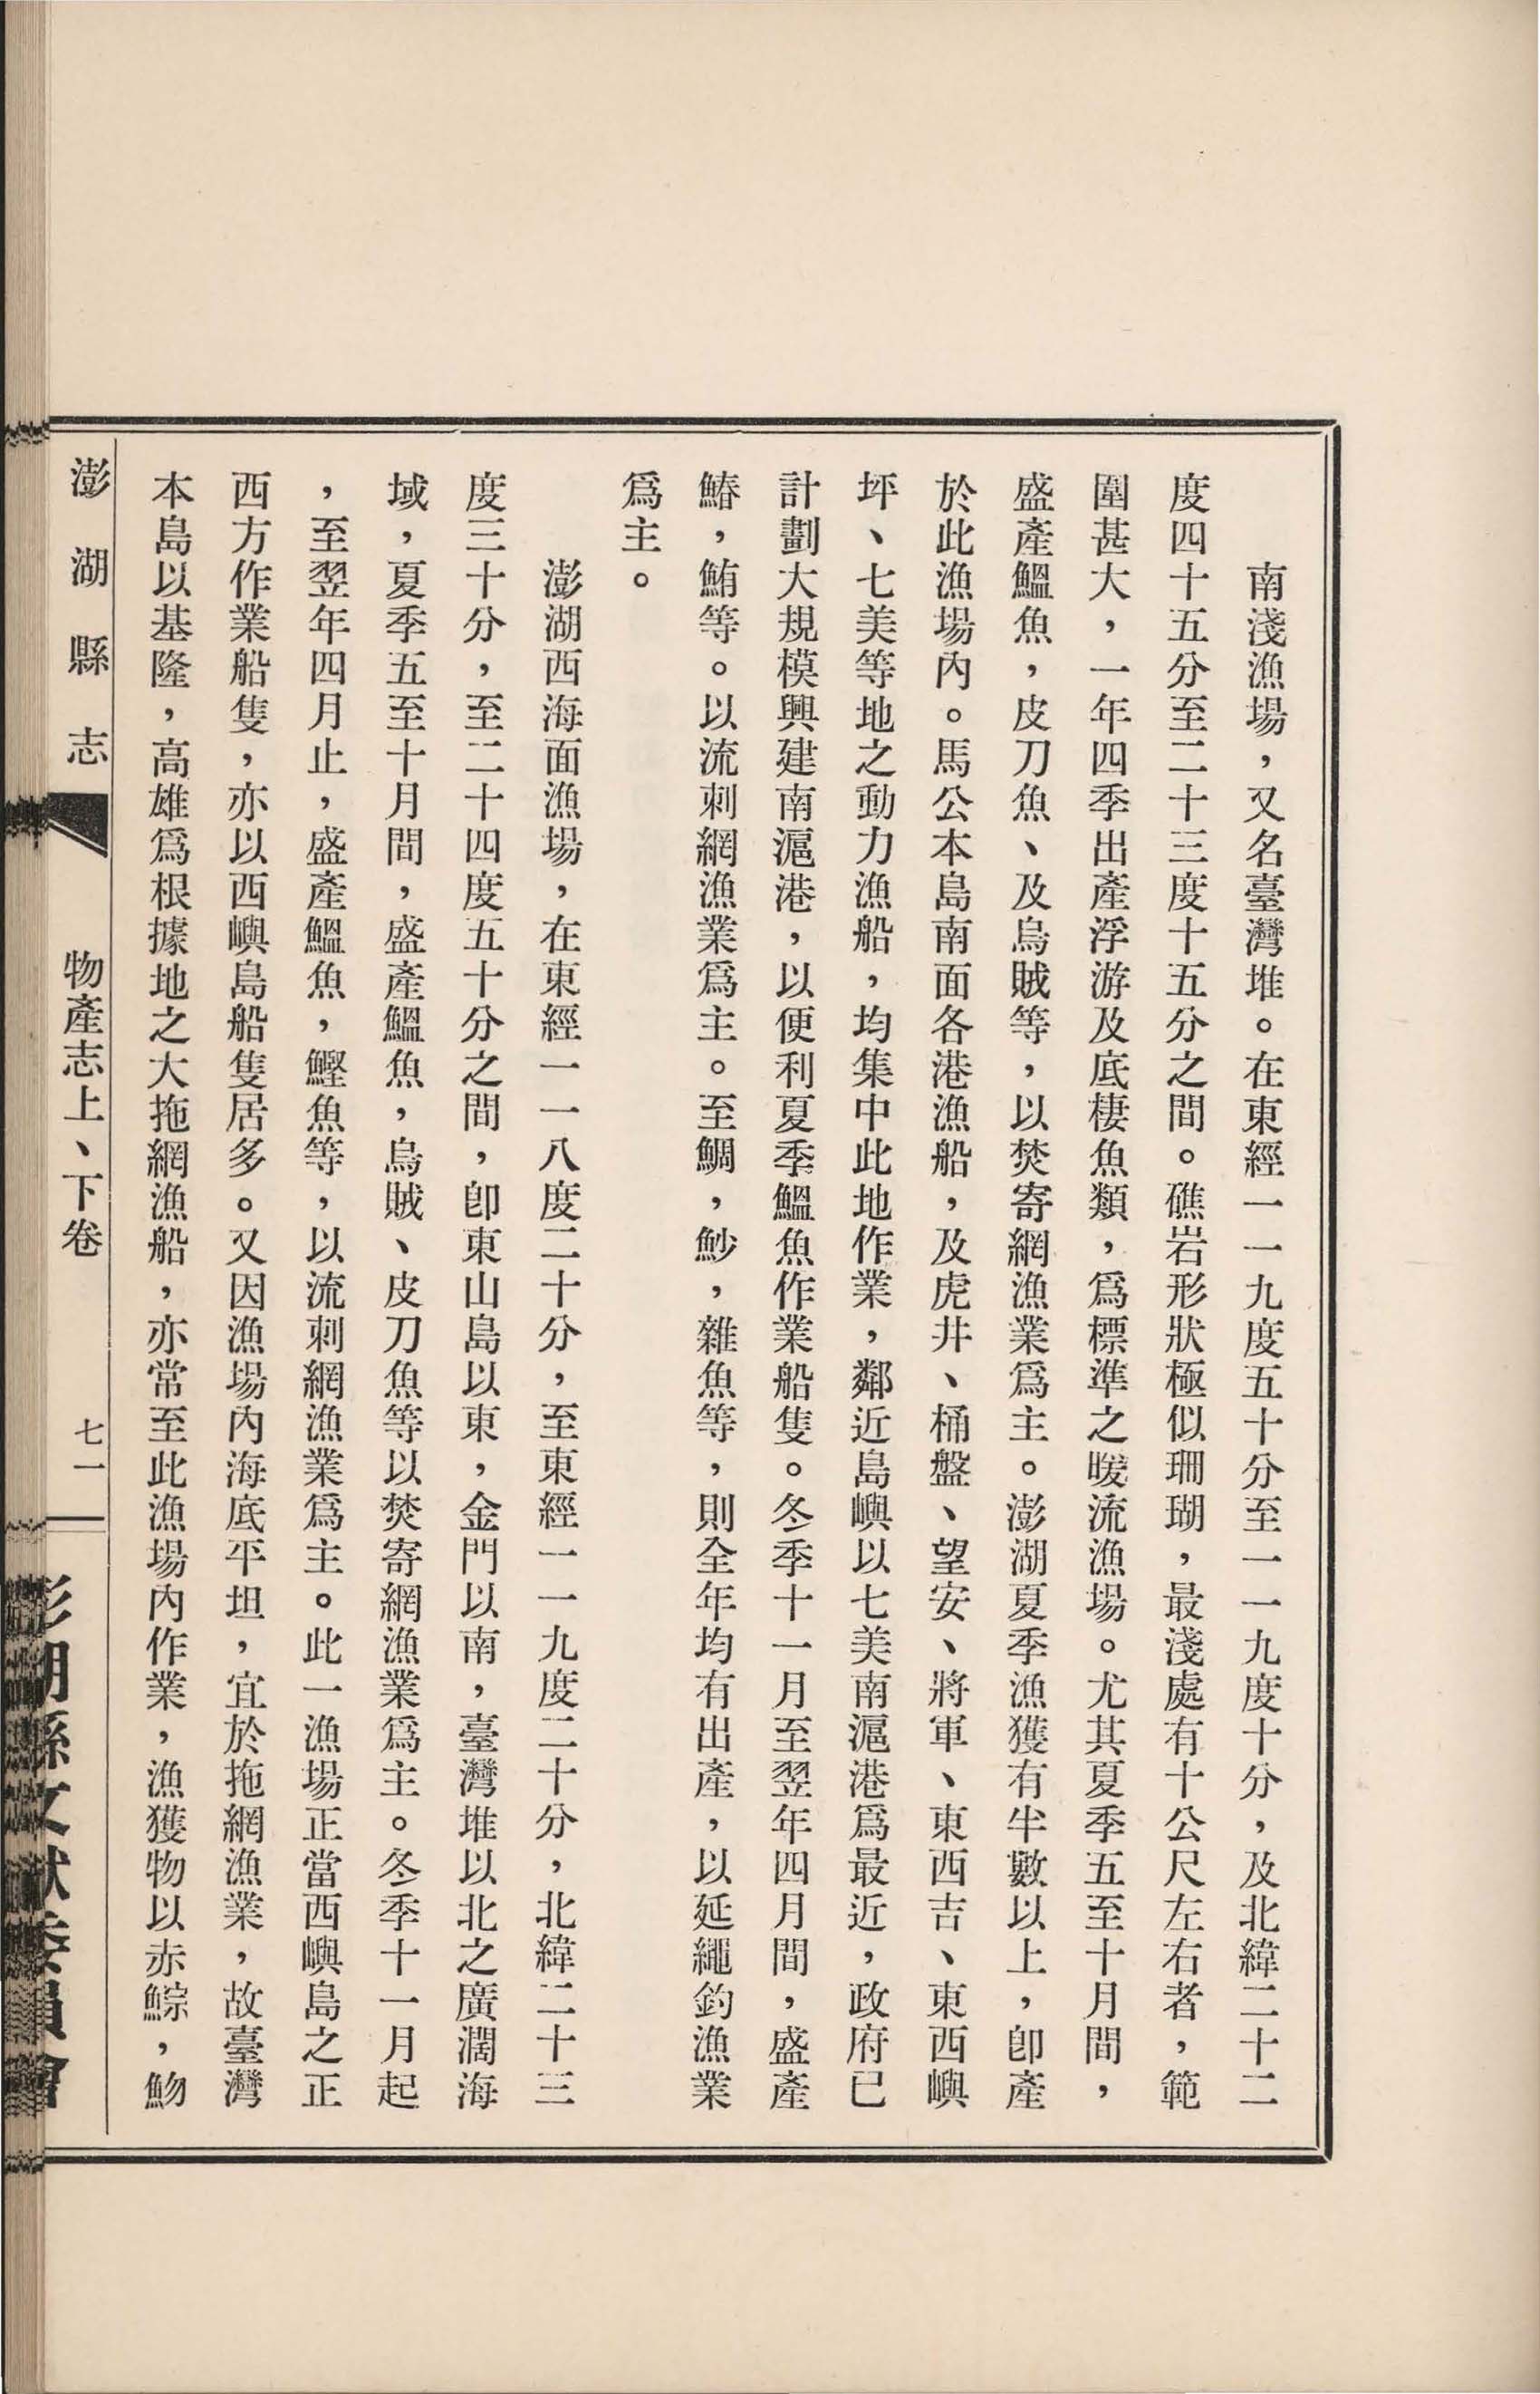 南淺漁場，又名臺灣堆。在東經一一九度五十分至一一九度十分，及北緯二十二
度四十五分至二十三度十五分之間。礁岩形狀極似珊瑚，最淺處有十公尺左右者，範
圍甚大，一年四季出產浮游及底棲魚類，爲標準之暖流漁場。尤其夏季五至十月間，
盛產鰮魚，皮刀魚、及烏賊等，以焚寄網漁業爲主。澎湖夏季漁獲有半數以上，卽產
於此漁場內。馬公本島南面各港漁船，及虎井、桶盤、望安、將軍、東西吉、東西嶼
坪、七美等地之動力漁船，均集中此地作業，鄰近島嶼以七美南滬港爲最近，政府已
計劃大規模興建南滬港，以便利夏季鰮魚作業船隻。冬季十一月至翌年四月間，盛產
鰆，鮪等。以流刺網漁業爲主。至鯛，魦，雜魚等，則全年均有出產，以延繩釣漁業
爲主。
澎湖西海面漁場，在東經一一八度二十分，至東經一一九度二十分，北緯二十三
度三十分，至二十四度五十分之間，卽東山島以東，金門以南，臺灣堆以北之廣濶海
域，夏季五至十月間，盛產鰮魚，烏賊、皮刀魚等以焚寄網漁業爲主。冬季十一月起
，至翌年四月止，盛產鰮魚，鰹魚等，以流刺網漁業爲主。此一漁場正當西嶼島之正
西方作業船隻，亦以西嶼島船隻居多。又因漁場內海底平坦，宜於拖網漁業，故臺灣
本島以基隆，高雄爲根據地之大拖網漁船，亦常至此漁場內作業，漁獲物以赤鯮，魩
澎湖縣志 物產志上、下卷 七一
澎湖縣文献委員會